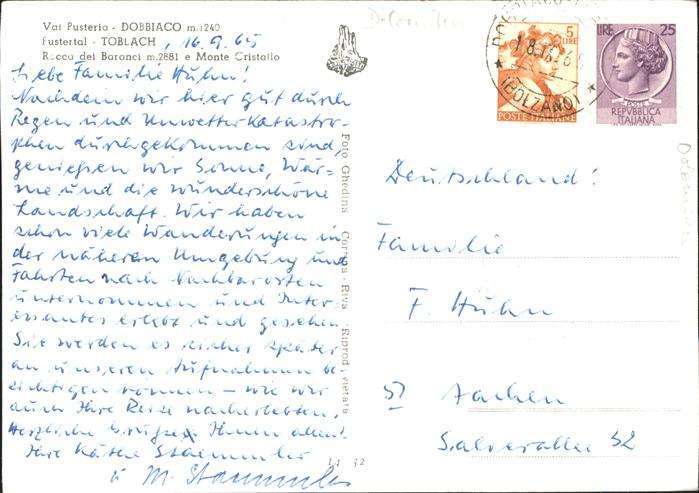 Val Pusteria - DOBBIACO m.1240
Pustertal - TOBLACH, 16.9.65
Rocca dei Baranci m.2881 e Monte Cristallo
Liebe Familie Huhn!
Nachdem wir hier gut durch
Regen und Unwetterkatastro-
phen durchgekommen sind,
genießen wir Sonne, Wär-
me und die wunderschöne
Landschaft. Wir haben
schon viele Wanderungen in
der näheren Umgebung und
Fahrten nach Nachbarorten
unternommen und Inter-
essantes erlebt und gesehen.
Sie werden es sicher später
an unseren Aufnahmen be-
sichtigen können – wie wir
auch Ihre Reise nacherlebten.
Herzliche Grüße Ihnen allen!
Ihre Käthe Stammler
u M. Stammler
Foto Ghedina Cortina - Riva Riprod. vietata
Dolomiten
5
LIRE
POSTE ITALIANE
(BOLZANO)
LIRE 25
POSTE
REPVBBLICA
ITALIANA
Deutschland!
Familie
F. Huhn
51 Aachen
Salvorallee 52